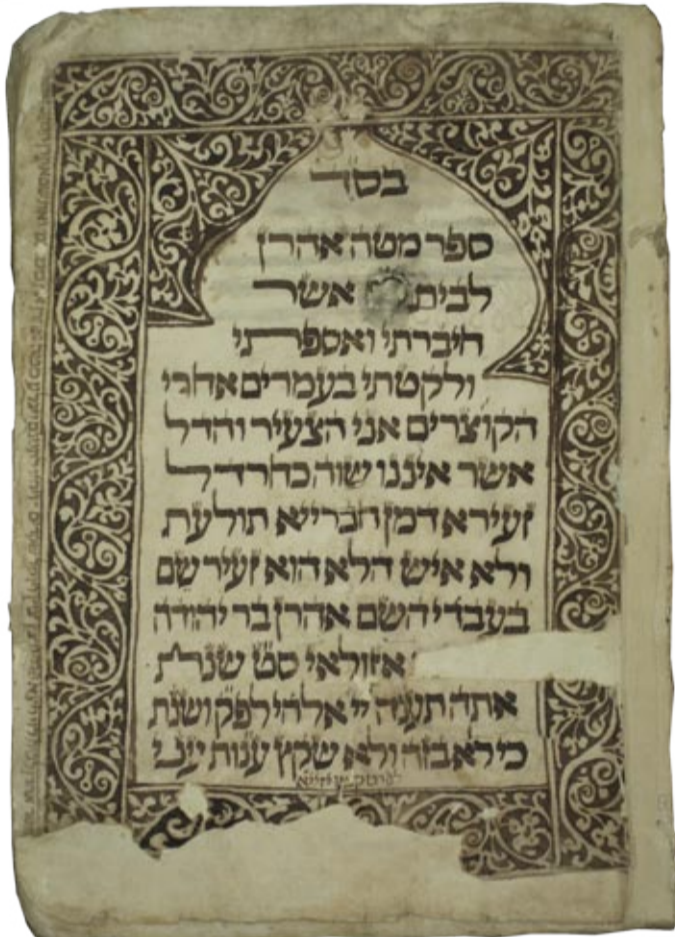 בסד
ספר מטה אהרן
לבית אשר
חיברתי ואספתי
ולקטתי בעמרים אחרי
הקוצרים אני הצעיר והדל
אשר איננו שוה כחרדל
זעירא דמן חברייא תולעת
ולא איש הלא הוא זעיר שם
בעבדי השם אהרן בר יהודה
אזולאי סט שנת
אתה תענה יי אלהי לפק ושנת
כי לא בזה ולא שקץ ענות עני
לפרט